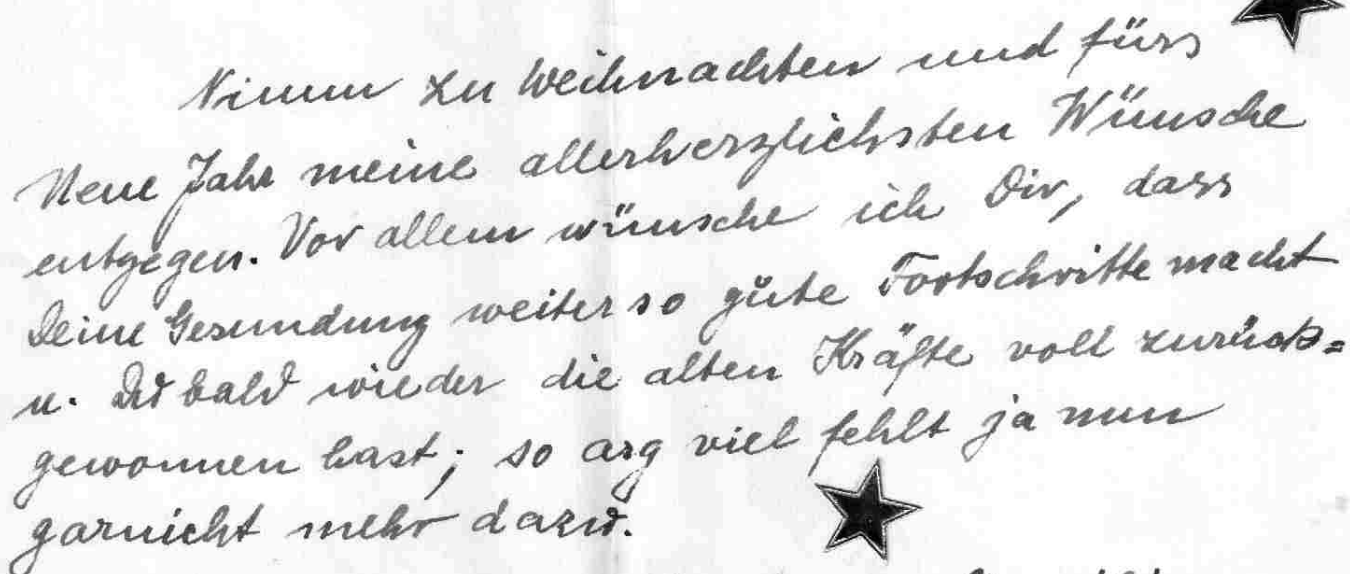 Nimm zu Weihnachten und fürs
Neue Jahr meine allerherzlichsten Wünsche
entgegen. Vor allem wünsche ich Dir, dass
Deine Gesundung weiter so gute Fortschritte macht
u. Du bald wieder die alten Kräfte voll zurück=
gewonnen hast; so arg viel fehlt ja nun
garnicht mehr dazu.